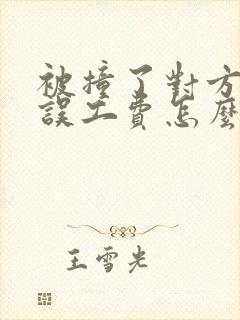 被撞了對方
誤工費怎麼
王雪光